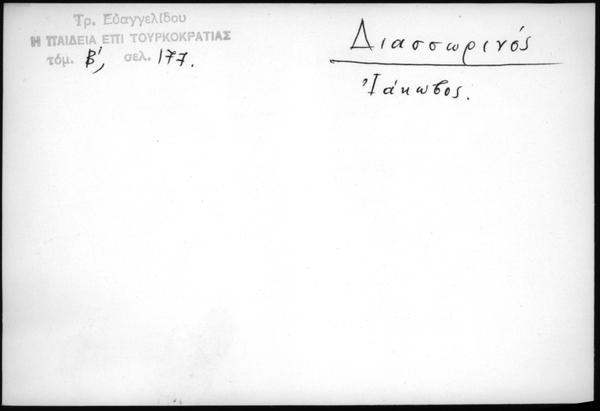 Τρ. Εὐαγγελίδου
Η ΠΑΙΔΕΙΑ ΕΠΙ ΤΟΥΡΚΟΚΡΑΤΙΑΣ
τόμ. Β', σελ. 177.
Διασσωρινός
Ἰάκωβος.